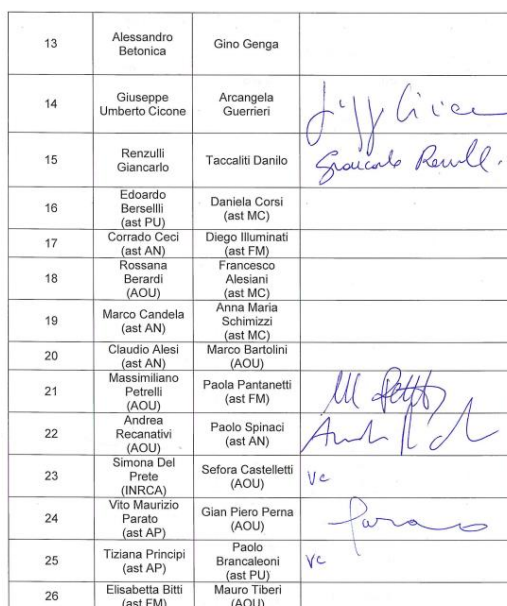 13 Alessandro Betonica Gino Genga
14 Giuseppe Umberto Cicone Arcangela Guerrieri
15 Renzulli Giancarlo Taccaliti Danilo Giancarlo Renzulli
16 Edoardo Bersellli (ast PU) Daniela Corsi (ast MC)
17 Corrado Ceci (ast AN) Diego Illuminati (ast FM)
18 Rossana Berardi (AOU) Francesco Alesiani (ast MC)
19 Marco Candela (ast AN) Anna Maria Schimizzi (ast MC)
20 Claudio Alesi (ast AN) Marco Bartolini (AOU)
21 Massimiliano Petrelli (AOU) Paola Pantanetti (ast FM)
22 Andrea Recanativi (AOU) Paolo Spinaci (ast AN)
23 Simona Del Prete (INRCA) Sefora Castelletti (AOU) vc
24 Vito Maurizio Parato (ast AP) Gian Piero Perna (AOU) Parato
25 Tiziana Principi (ast AP) Paolo Brancaleoni (ast PU) vc
26 Elisabetta Bitti (ast FM) Mauro Tiberi (AOU)